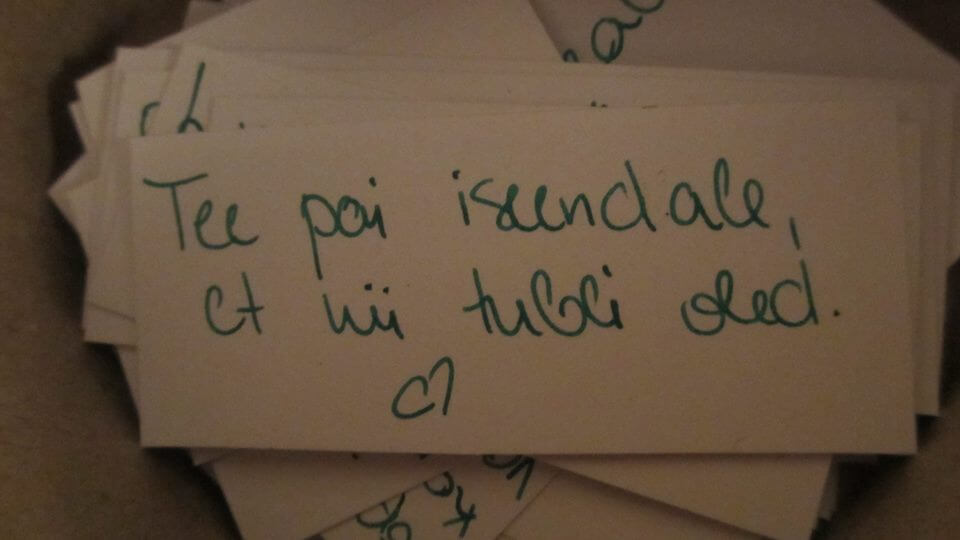 Tee pai iseendale,
et nii tubli oled.